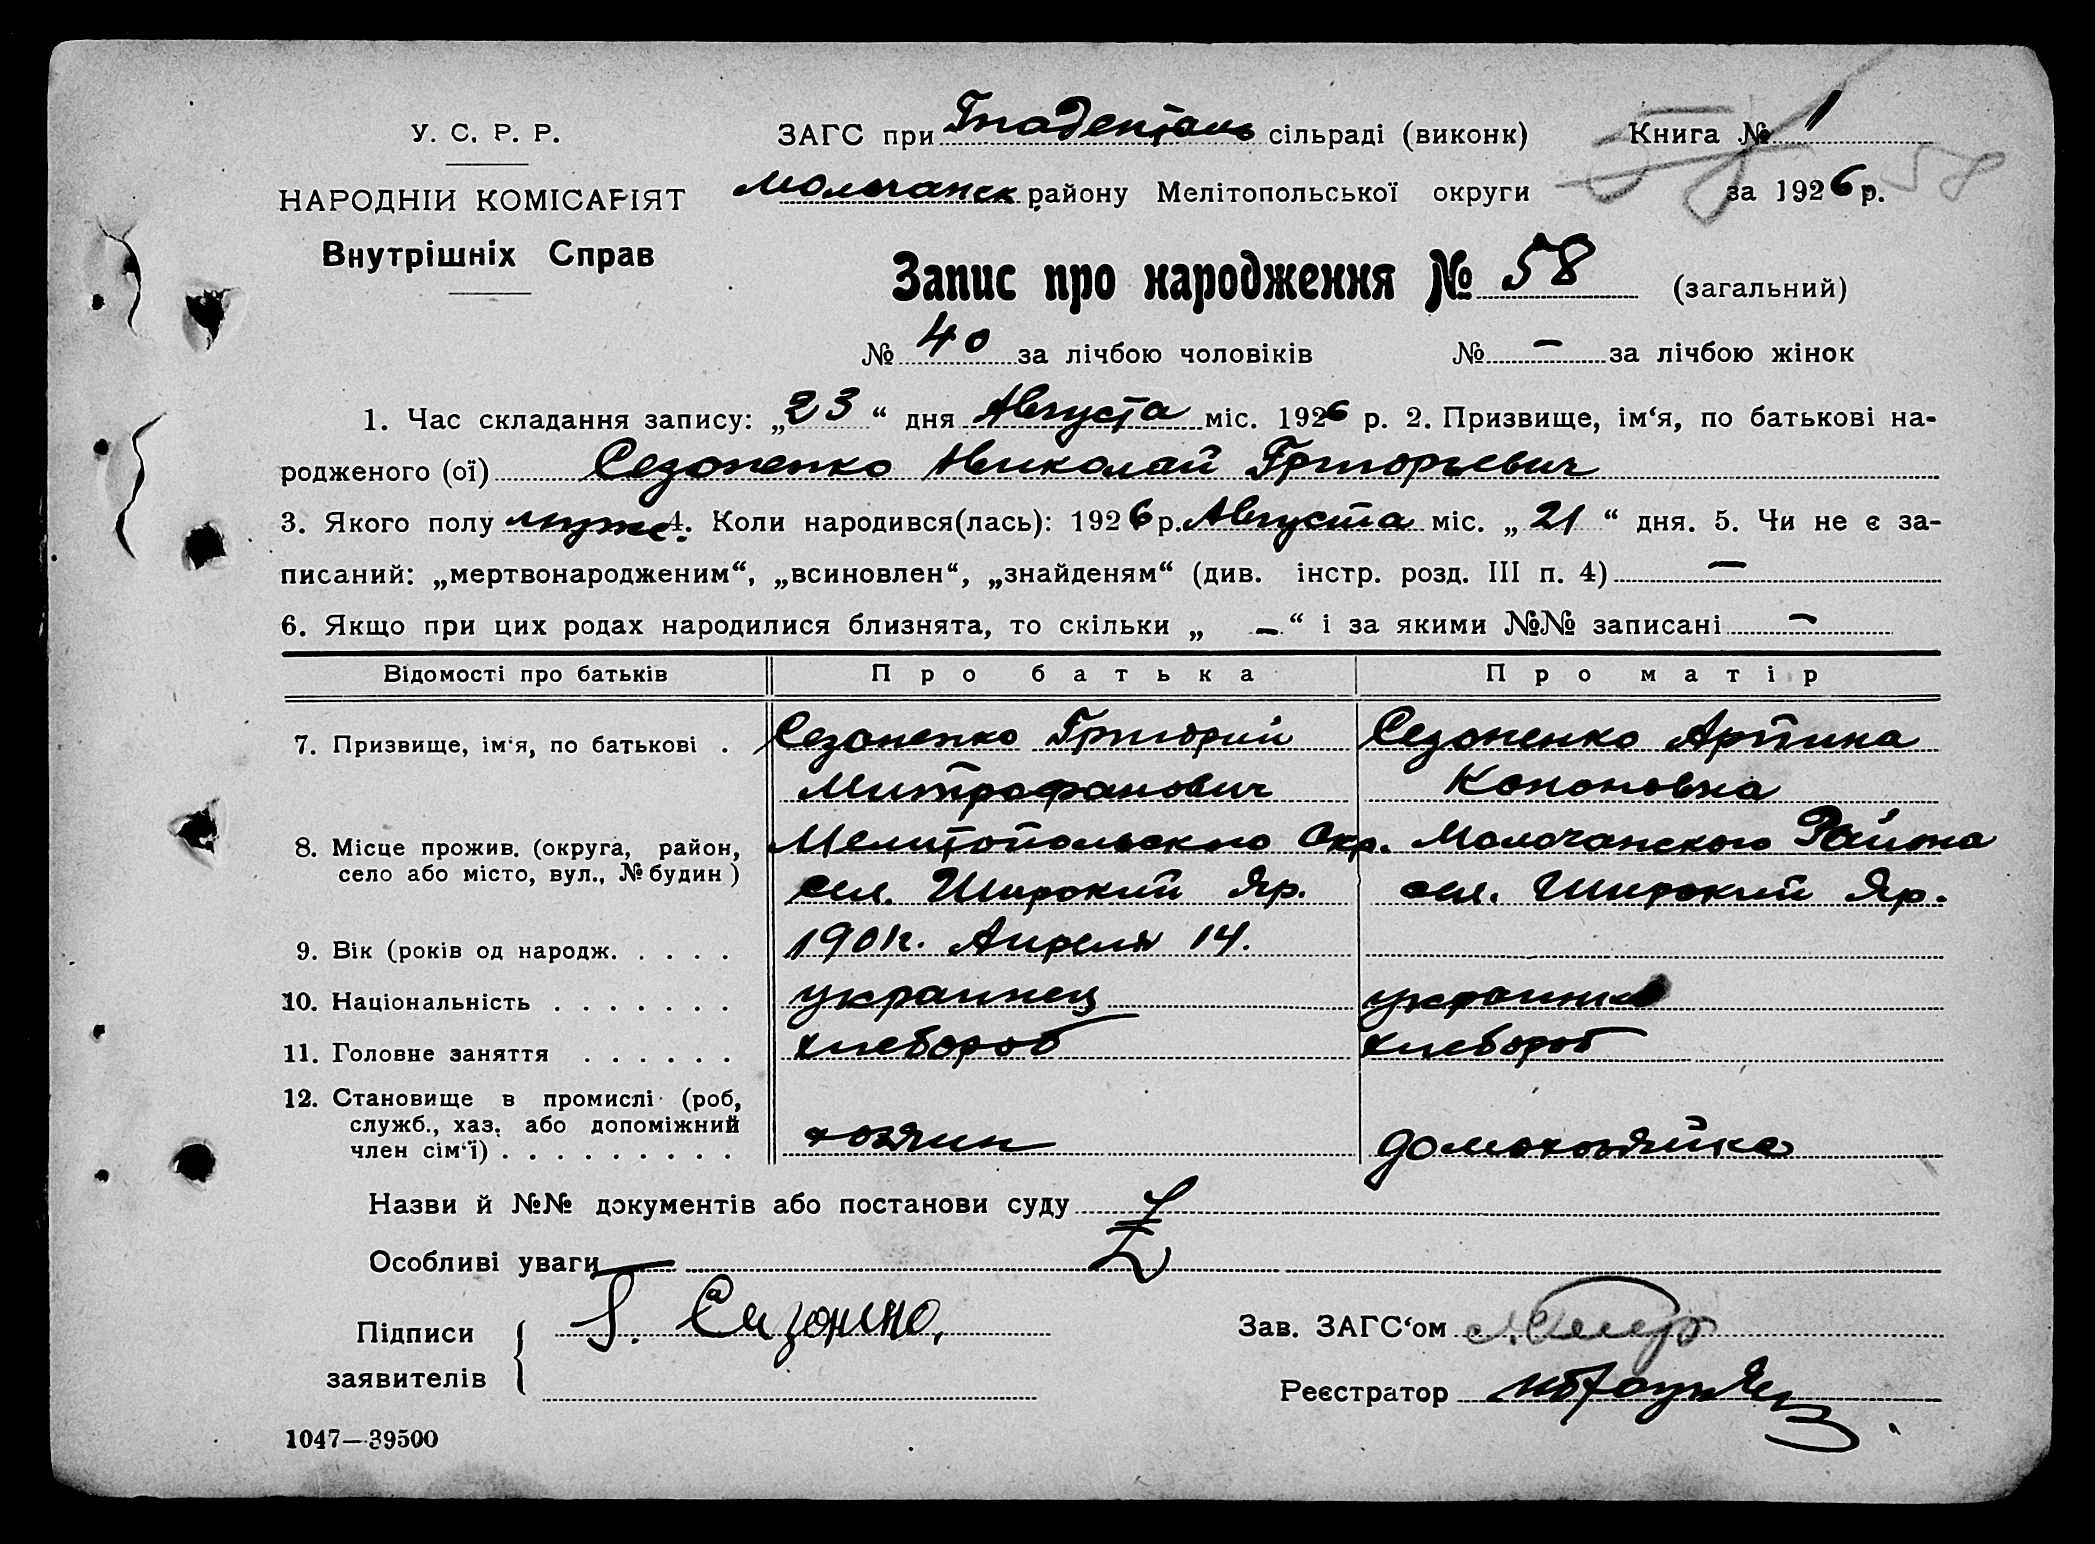 У. С. Р. Р.
НАРОДНІЙ КОМІСАРІЯТ
Внутрішніх Справ
ЗАГС при Гнаденталь сільраді (виконк) Книга № 1
Молочанск району Мелітопольської округи за 1926 р. 58
Запис про народження № 58 (загальний)
№ 40 за лічбою чоловіків № — за лічбою жінок
1. Час складання запису: „23“ дня Августа міс. 1926 р. 2. Призвище, ім‘я, по батькові на-
родженого (ої) Сезоненко Николай Григорьевич
3. Якого полу муже. 4. Коли народився(лась): 1926 р. Августа міс. „21“ дня. 5. Чи не є за-
писаний: „мертвонародженим“, „всиновлен“, „знайденям“ (див. інстр. розд. III п. 4) —
6. Якщо при цих родах народилися близнята, то скільки „ — “ і за якими №№ записані —
Відомості про батьків Про батька Про матір
7. Призвище, ім‘я, по батькові . Сезоненко Григорий Сезоненко
Митрофанович Кононовна
8. Місце прожив. (округа, район, село або місто, вул., № будин) Мелитопольского Окр. Молочанского Района
сел. Широкий Яр. сел. Широкий Яр.
9. Вік (років од народж. . . . . 1901г. Апреля 14.
10. Національність . . . . . . . украинец
11. Головне заняття . . . . . . хлебороб хлебороб
12. Становище в промислі (роб, служб., хаз. або допоміжний член сім‘ї) . . . . . . . . . хозяин домохозяйка
Назви й №№ документів або постанови суду
Особливі уваги —
Підписи
заявителів
Зав. ЗАГС‘ом
Реєстратор
1047—39500